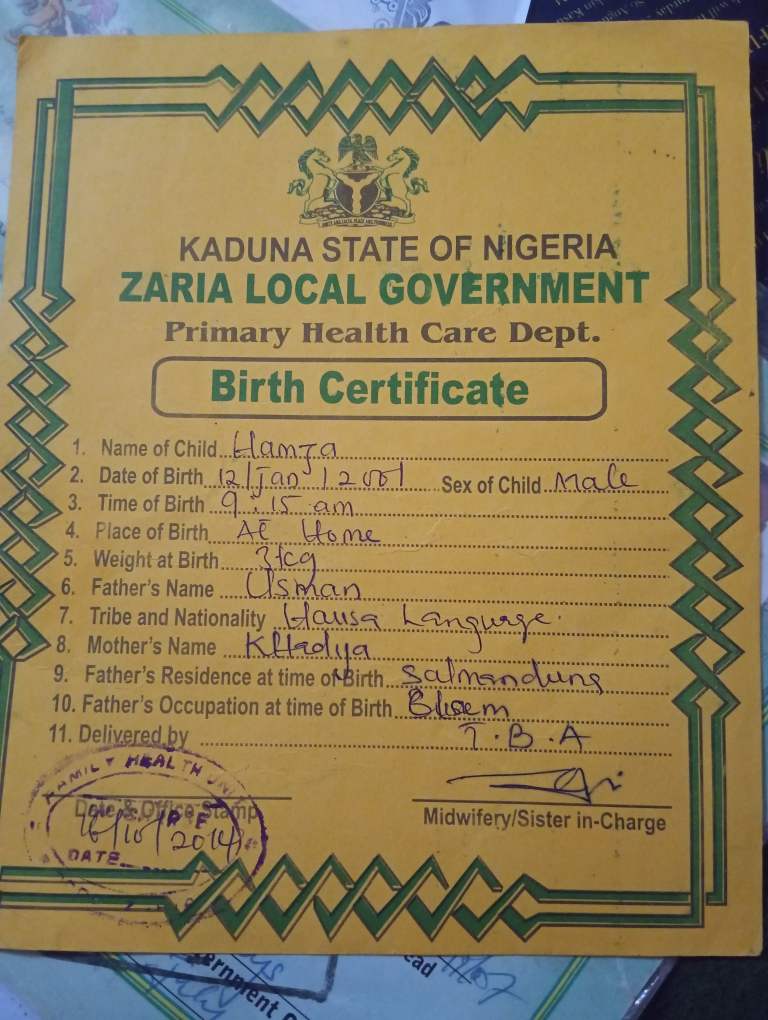 KADUNA STATE OF NIGERIA
ZARIA LOCAL GOVERNMENT
Primary Health Care Dept.
Birth Certificate
1. Name of Child Hamza
2. Date of Birth 12/Jan/2001 Sex of Child Male
3. Time of Birth 9:15 am
4. Place of Birth At Home
5. Weight at Birth 3kg
6. Father's Name Usman
7. Tribe and Nationality Hausa
8. Mother's Name Khadija
9. Father's Residence at time of Birth
10. Father's Occupation at time of Birth
11. Delivered by T.B.A
FAMILY HEALTH UNI
Date & Office Stamp
Midwifery/Sister in-Charge
16/10/2014
DATE